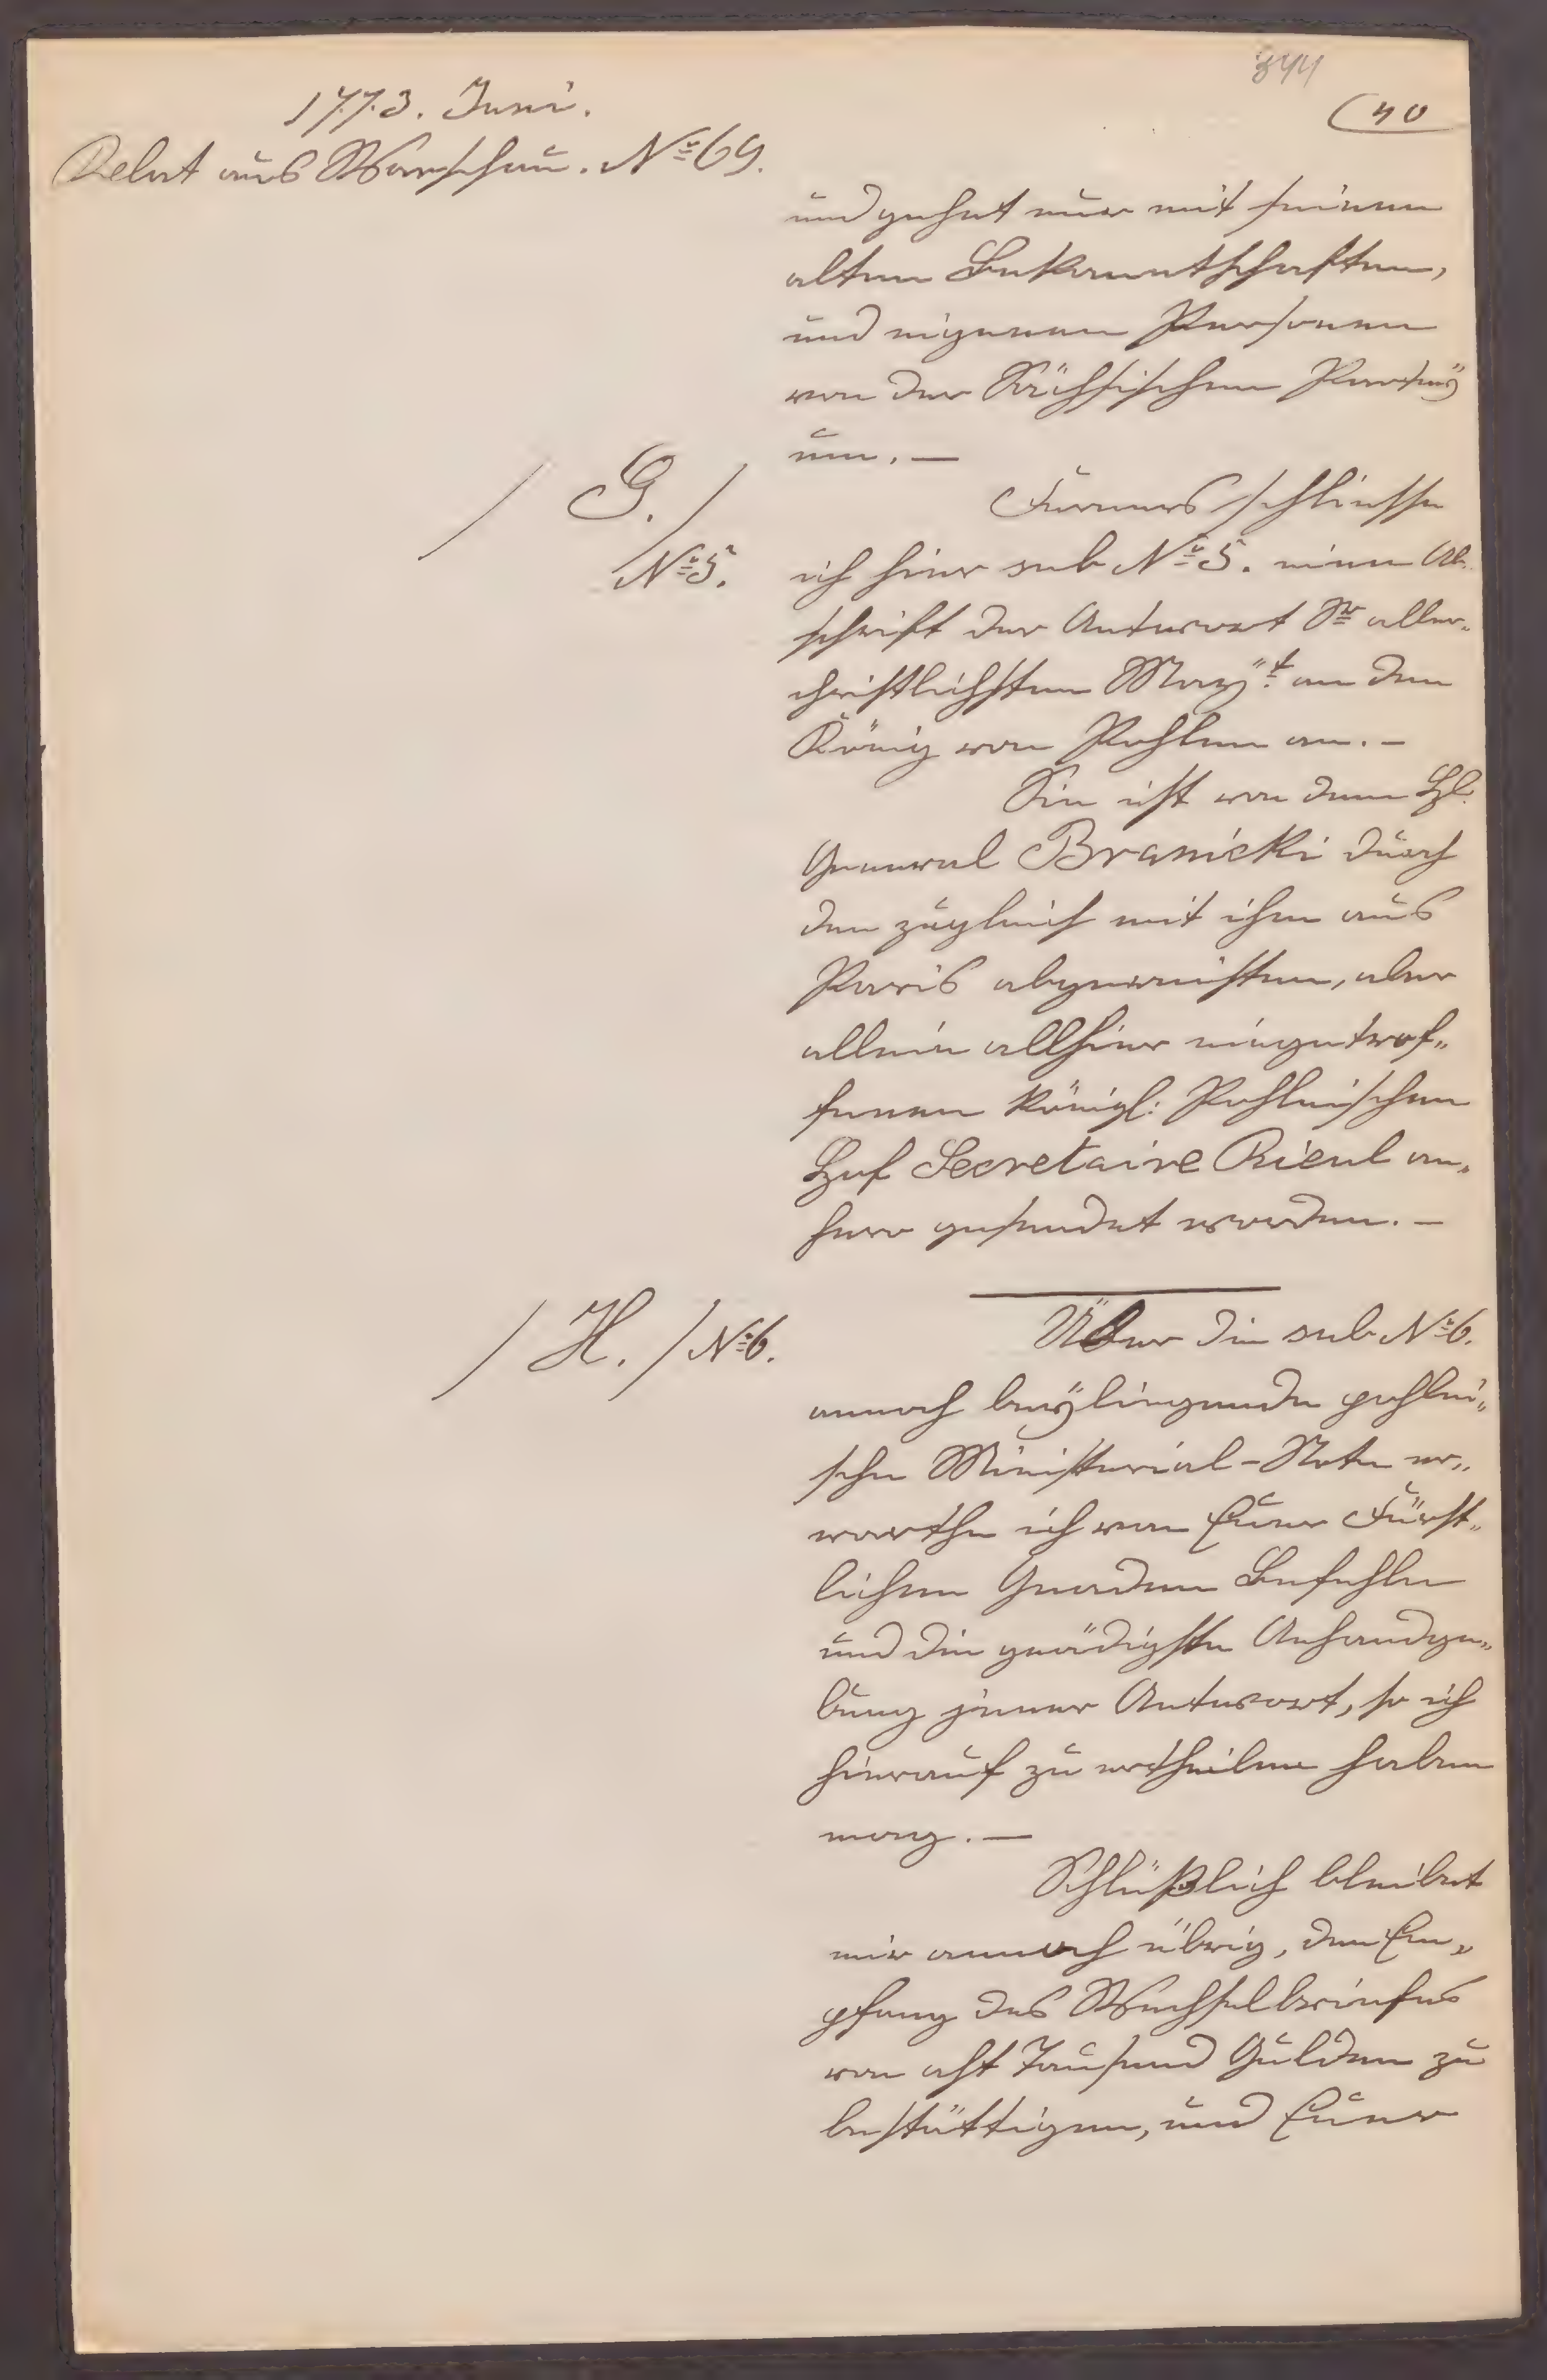 344
(40
1773. Juni.
Relat aus Warschau. Nº 69.
und gehet nur mit seinen
alten Bekanntschaften,
und eigenen Personen
von der Sächsischen Parteÿ
um. —
/ G. /
Ferners schliesse
Nº 5.
ich hier sub Nº 5. eine Ab„
schrift der Antwort Sr aller„
christlichsten Maÿt. an den
König von Pohlen an. —
Sie ist von dem H.
General Branicki durch
den zugleich mit ihm aus
Paris abgereisten, aber
allein allhier eingetrof„
fenen königl: Pohlnischen
Hof Secretaire Rieul an„
hero gesendet worden. —
/ H. / Nº 6.
Über die sub Nº 6.
annoch beÿliegende pohlni„
sche Ministerial-Note er„
warthe ich von Euer Fürst„
lichen Gnaden Befehle
und die gnädigste Anhandge„
bung jener Antwort, so ich
hierauf zu ertheilen haben
mag. —
Schlüßlich bleibet
mir annoch übrig, den Em„
pfang des Wechselbriefes
von acht Tausend Gulden zu
bestättigen, und Euer